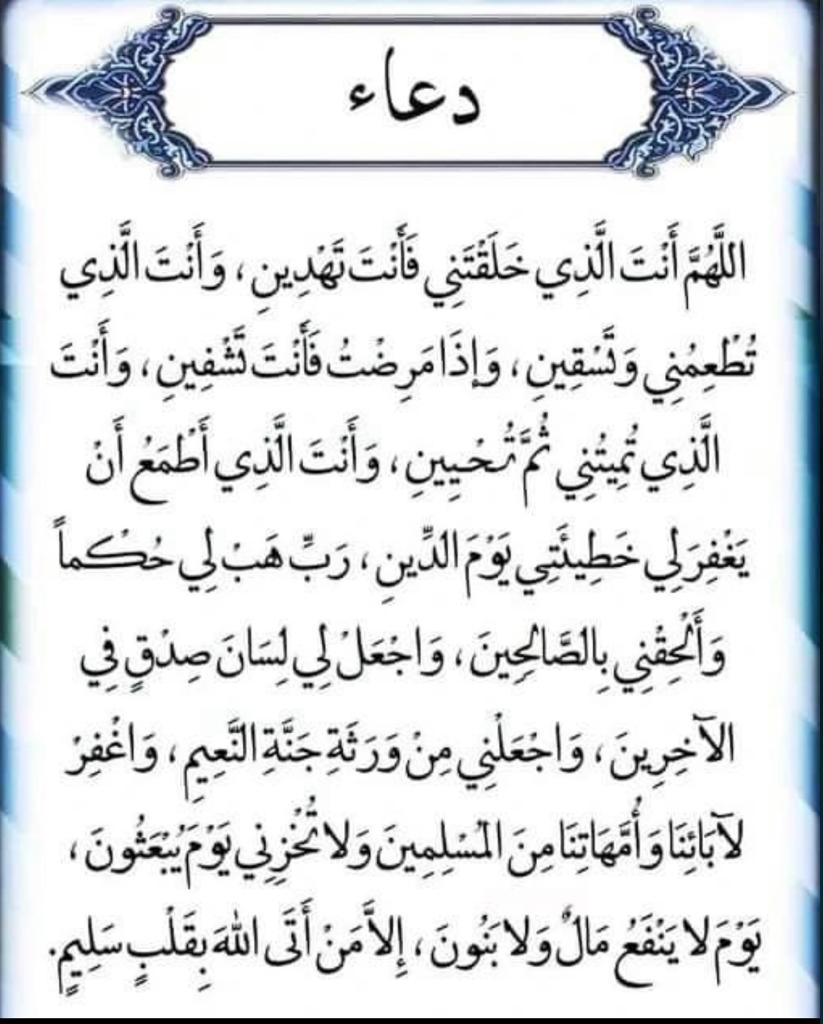 دعاء
اللَّهُمَّ أَنْتَ الَّذِي خَلَقْتَنِي فَأَنْتَ تَهْدِينِ، وَأَنْتَ الَّذِي
تُطْعِمُنِي وَتَسْقِينِ، وَإِذَا مَرِضْتُ فَأَنْتَ تَشْفِينِ، وَأَنْتَ
الَّذِي تُمِيتُنِي ثُمَّ تُحْيِينِ، وَأَنْتَ الَّذِي أَطْمَعُ أَنْ
يَغْفِرَ لِي خَطِيئَتِي يَوْمَ الدِّينِ، رَبِّ هَبْ لِي حُكْماً
وَأَلْحِقْنِي بِالصَّالِحِينَ، وَاجْعَلْ لِي لِسَانَ صِدْقٍ فِي
الآخِرِينَ، وَاجْعَلْنِي مِنْ وَرَثَةِ جَنَّةِ النَّعِيمِ، وَاغْفِرْ
لآبَائِنَا وَأُمَّهَاتِنَا مِنَ الْمُسْلِمِينَ وَلا تُخْزِنِي يَوْمَ يُبْعَثُونَ،
يَوْمَ لا يَنْفَعُ مَالٌ وَلا بَنُونَ، إِلاَّ مَنْ أَتَى اللهَ بِقَلْبٍ سَلِيمٍ.